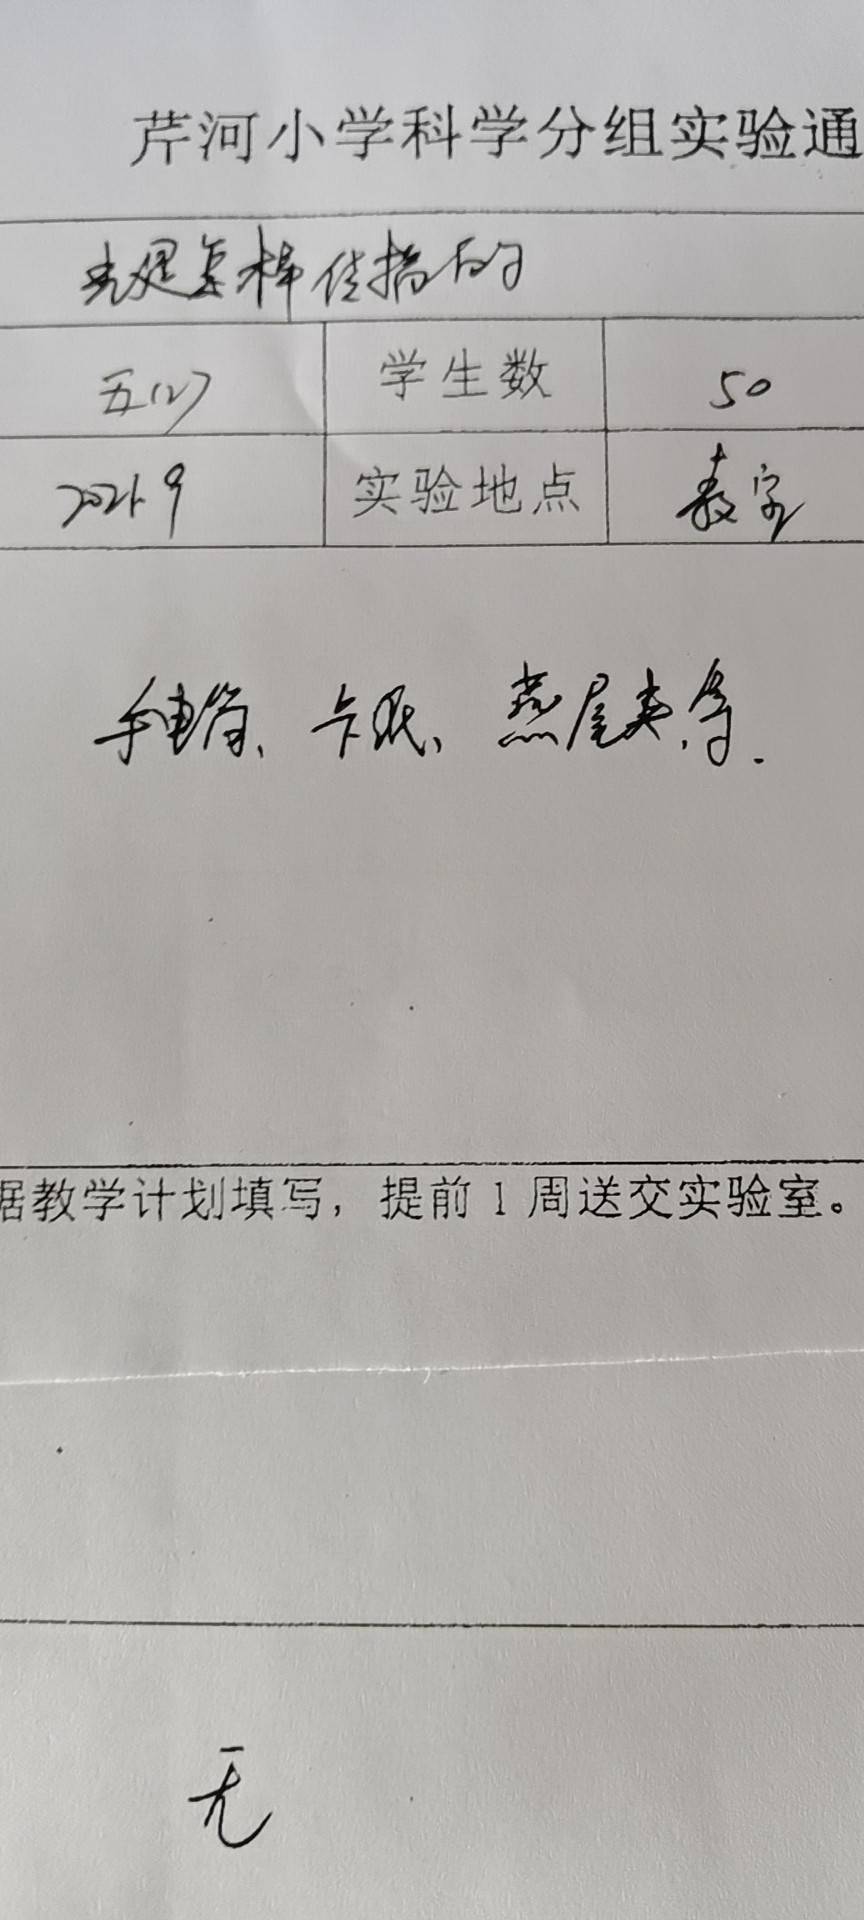 芹河小学科学分组实验通
光是怎样传播的
五(2) 学生数 50
2021.9 实验地点 教室
手电筒、卡纸、燕尾夹等.
据教学计划填写，提前1周送交实验室。
无